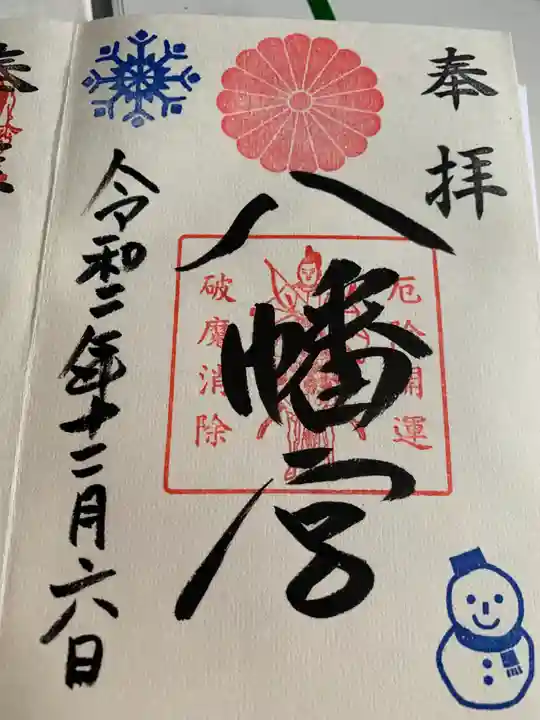 奉拝
八幡宮
厄除開運
破魔消除
令和二年十二月六日
奉